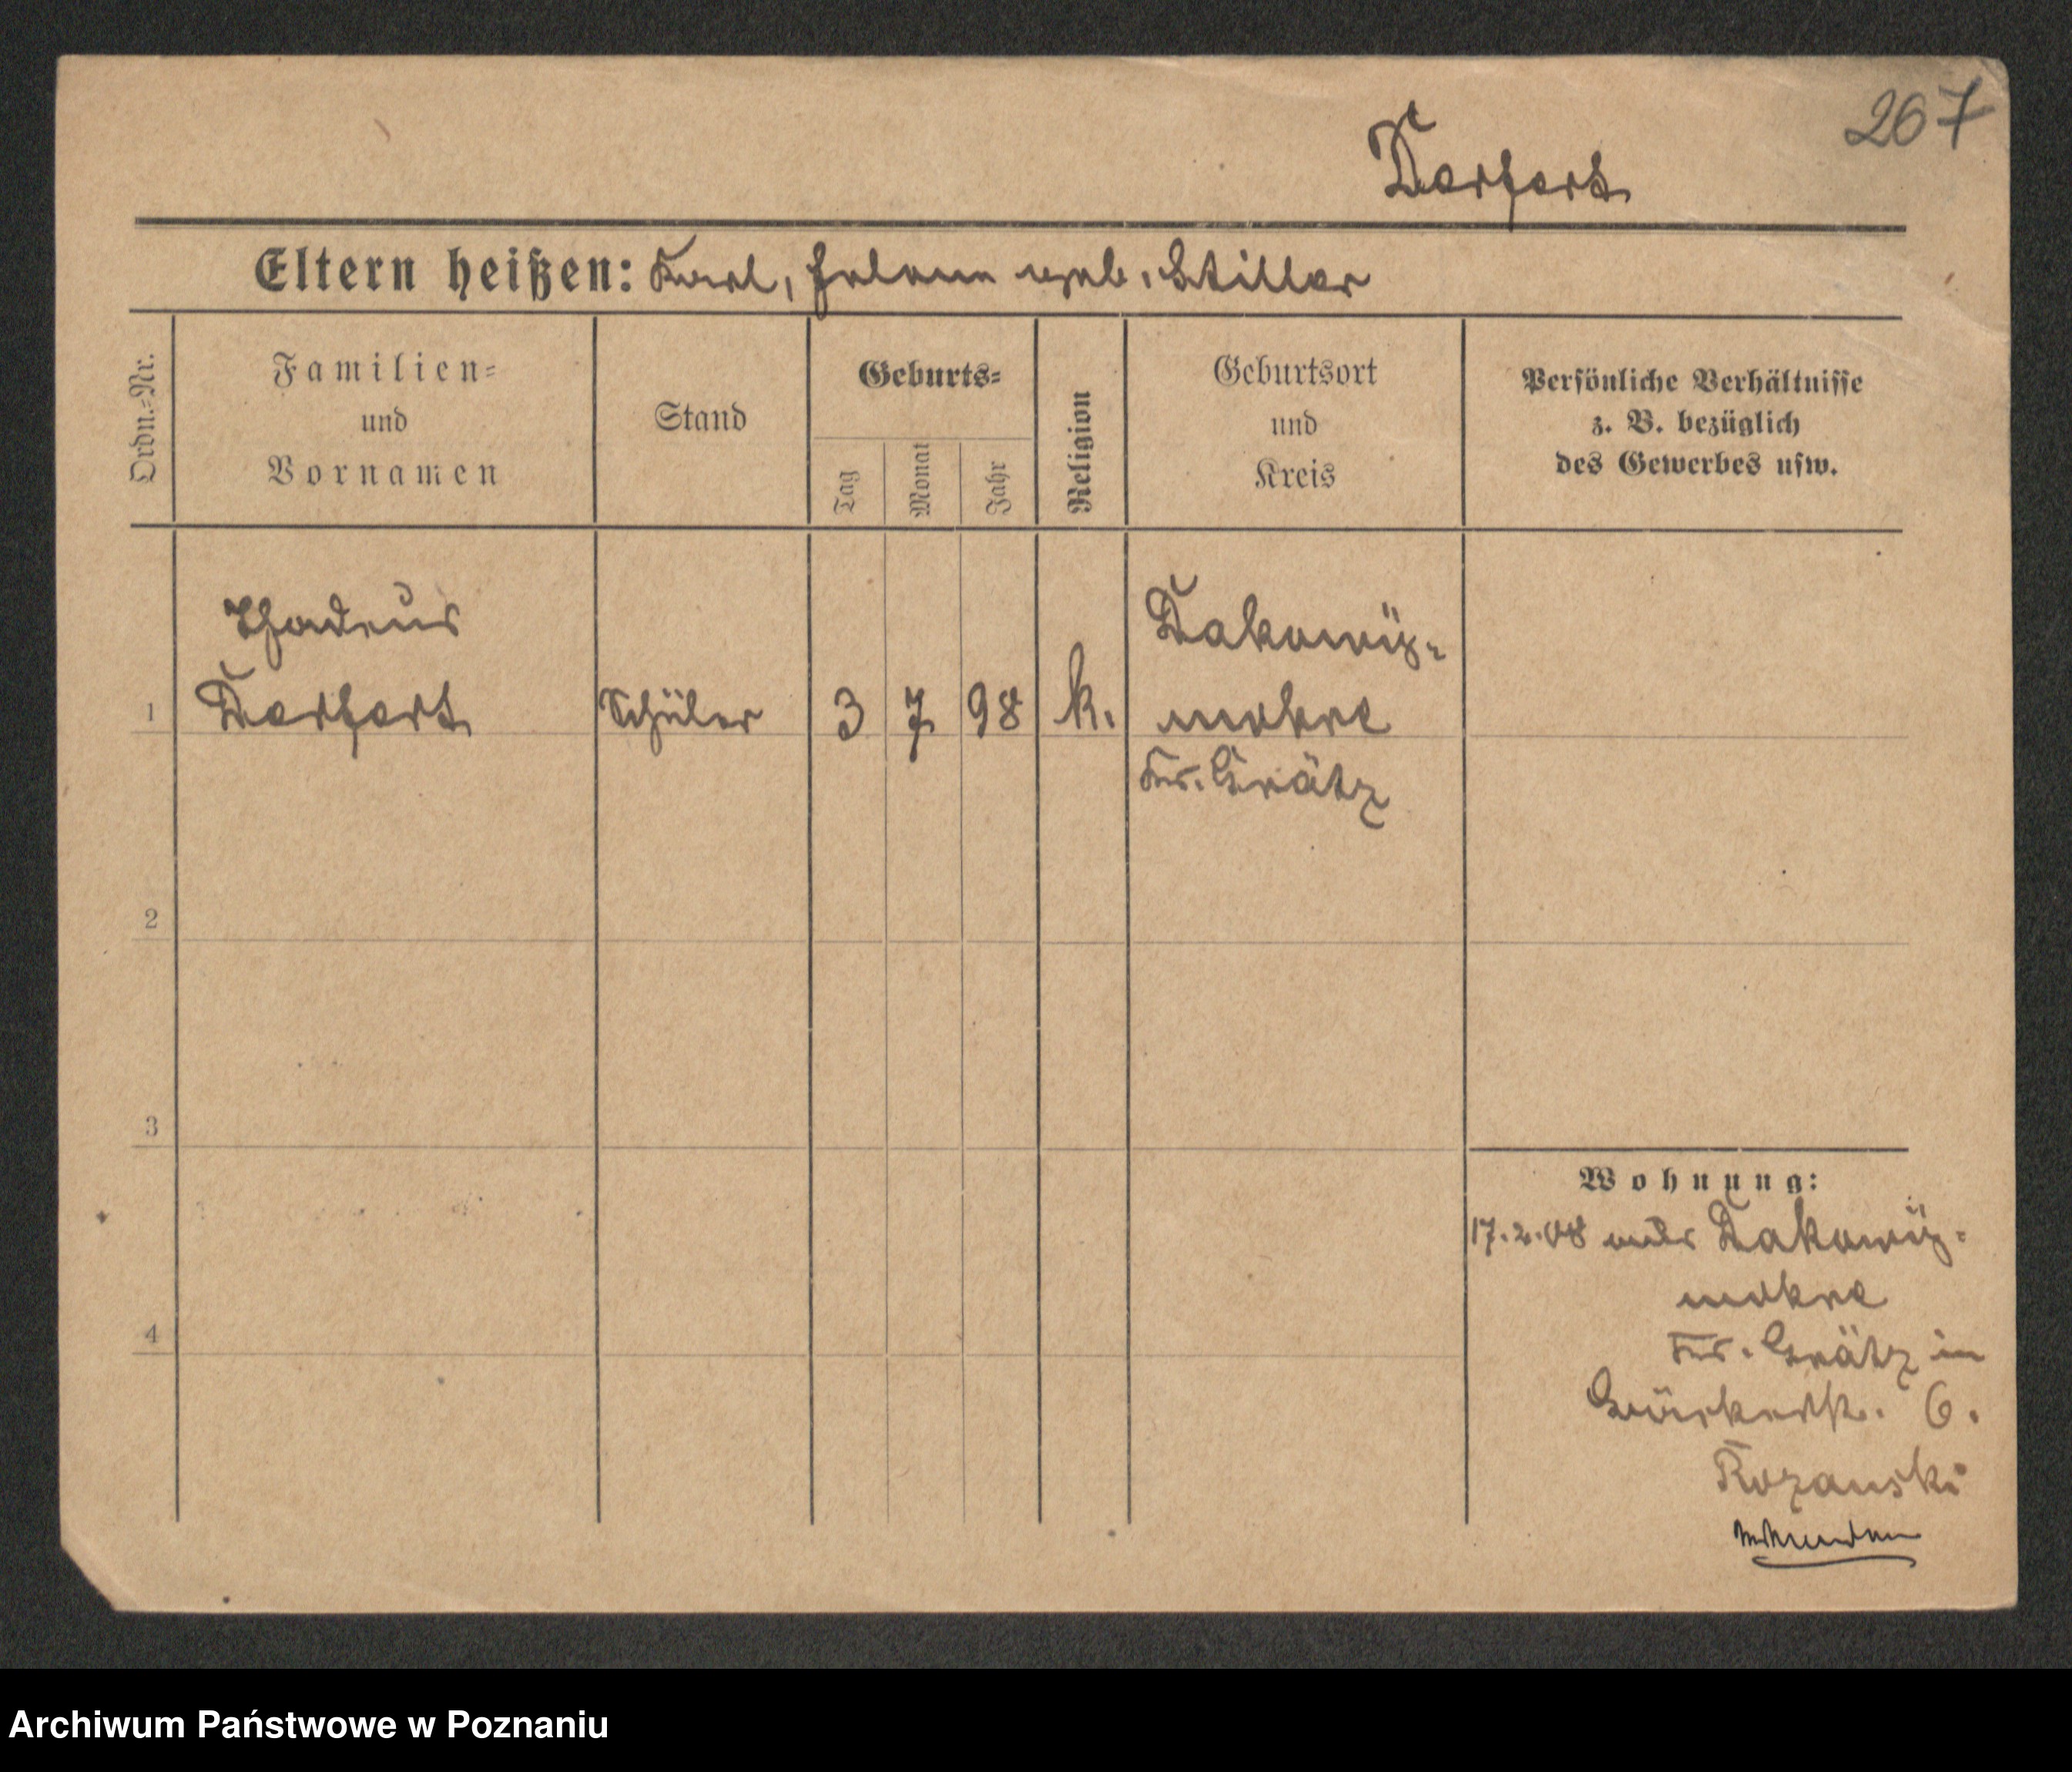 267
Derfert
Eltern heißen: Karl, Helene geb. Stiller
Ordn.-Nr.
Familien-
und
Vornamen
Stand
Geburts-
Tag
Monat
Jahr
Religion
Geburtsort
und
Kreis
Persönliche Verhältnisse
z. B. bezüglich
des Gewerbes usw.
1
Thadeus
Derfert
Schüler
3 7 98 k.
Dakowy-
mokre
Kr. Grätz
2
3
4
Wohnung:
17.2.08 aus Dakowy-
mokre
Kr. Grätz in
6.
Rozanski
Archiwum Państwowe w Poznaniu